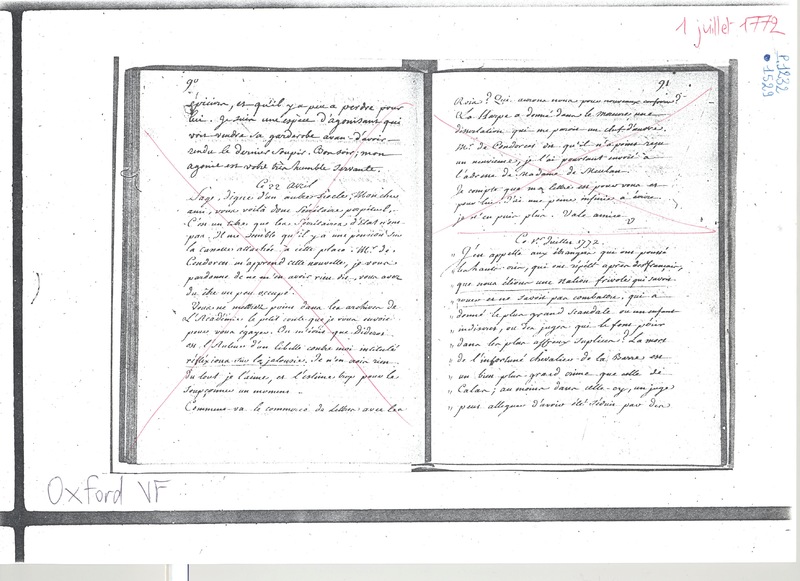 1 juillet 1772
P.1232
1529
90
épicier, et qu'il y a peu a perdre pour
lui. Je suis une espèce d'agonisant qui
voit vendre sa garderobe avant d'avoir
rendu le dernier soupir. Bon soir; mon
agonie est votre très humble servante.
Le 22 Avril
Sage, digne d'un autre siecle, Mon cher
ami, vous voilà donc Sécrétaire perpétuel,
C'est un titre que les Sécrétaires d'Etat n'ont
pas. Il me semble qu'il y a une pension sur
la cassette attachée à cette place. Mr. de
Condorcet m'apprend cette nouvelle, je vous
pardonne de ne m'en avoir rien dit, vous avez
du être un peu occupé.
Vous ne mettrez point dans les archives de
L'Académie le petit conte que je vous envoie
pour vous égayer. On m'écrit que Diderot
est l'Auteur d'un libelle contre moi intitulé
réflexions sur la jalousie. Je n'en crois rien
du tout, je l'aime, et l'estime trop pour le
soupçonner un moment.
Comment va le commerce de Lettres avec les
91
Rois? Qui aurons nous pour nouveaux confreres?
La Harpe a donné dans le mercure une
dissertation qui me parait un chef d'œuvre.
Mr. de Condorcet dit qu'il n'a point reçu
un neuvieme, je l'ai pourtant envoié à
l'adresse de Madame de Meulan.
Je compte que ma lettre est pour vous et
pour lui. J'ai une peine infinie à écrire
je n'en puis plus. Vale amice
V
Ce 1er. Juillet 1772.
" J'en appelle aux étrangers qui ont pensé
" un haut-rien, qui ont répété après des français,
" que nous étions une nation frivole qui savoit
" rouer et ne savoit pas combattre, qui a
" donné le plus grand scandale ou un enfant
" indiscret, ou des juges qui le font périr
" dans les plus affreux suplices? La mort
" de l'infortuné chevalier de la Barre est
" un bien plus grand crime que celle de
" Calas; au moins dans celle-cy, un juge
" peut alléguer d'avoir été séduit par des
Oxford VF